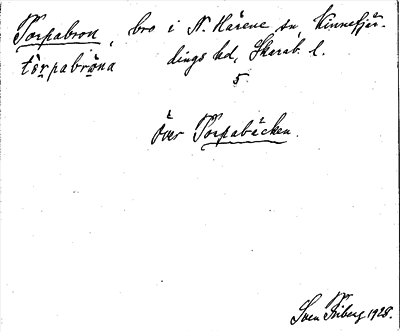 Torpabron, bro i N. Härene sn, Kinnefjär-
törpabrona dings hd, Skarab. l.
5.
över Torpabäcken.
Sven Friberg 1928.